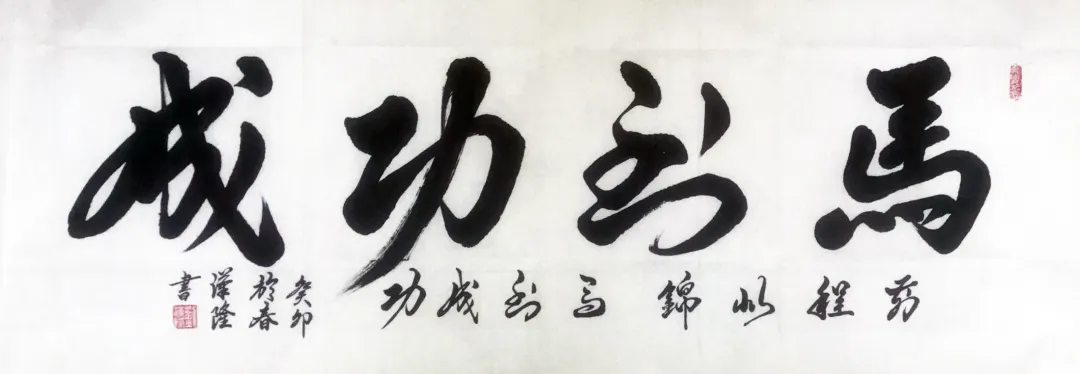 馬到功成
前程似錦馬到成功
癸卯
於春
漢隆
書